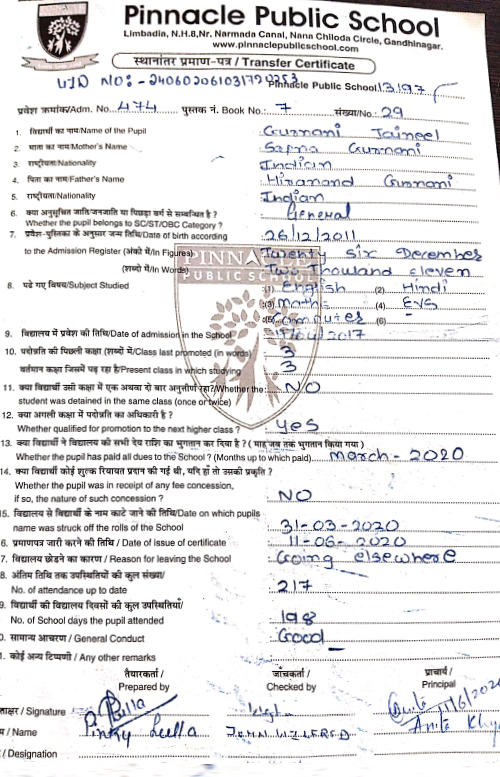 Pinnacle Public School
Limbadia, N.H.8,Nr. Narmada Canal, Nana Chiloda Circle, Gandhinagar.
www.pinnaclepublicschool.com
स्थानांतर प्रमाण-पत्र / Transfer Certificate
UID No:- Pinnacle Public School/13197
प्रवेश क्रमांक/Adm. No. 474 पुस्तक नं. Book No.: 7 संख्या/No.: 29
1. विद्यार्थी का नाम/Name of the Pupil : Gurnani Jaineel
2. माता का नाम/Mother's Name : Sapna Gurnani
3. राष्ट्रीयता/Nationality : Indian
4. पिता का नाम/Father's Name : Hiranand Gurnani
5. राष्ट्रीयता/Nationality : Indian
6. क्या अनुसूचित जाति/जनजाति या पिछड़ा वर्ग से सम्बन्धित है ?
Whether the pupil belongs to SC/ST/OBC Category ? : General
7. प्रवेश-पुस्तिका के अनुसार जन्म तिथि/Date of birth according : 26/12/2011
to the Admission Register (अंको में/In Figures) : Twenty six December
(शब्दो में/In Words) Two Thousand eleven
PINNACLE
PUBLIC SCHOOL
8. पढे गए विषय/Subject Studied : (1) English (2) Hindi
(3) Maths (4) EVS
(5) Computer (6) -
9. विद्यालय में प्रवेश की तिथि/Date of admission in the School : /04/2017
10. पदोन्नति की पिछली कक्षा (शब्दो में/Class last promoted (in words) : 3
वर्तमान कक्षा जिसमें पढ़ रहा है/Present class in which studying : 3
11. क्या विद्यार्थी उसी कक्षा में एक अथवा दो बार अनुत्तीर्ण रहा?/Whether the : NO
student was detained in the same class (once or twice)
12. क्या अगली कक्षा में पदोन्नति का अधिकारी है ?
Whether qualified for promotion to the next higher class ? : yes
13. क्या विद्यार्थी ने विद्यालय की सभी देय राशि का भुगतान कर दिया है ? ( माह जब तक भुगतान किया गया )
Whether the pupil has paid all dues to the School ? (Months up to which paid) March - 2020
14. क्या विद्यार्थी कोई शुल्क रियायत प्रदान की गई थी, यदि हाँ तो उसकी प्रकृति ?
Whether the pupil was in receipt of any fee concession,
if so, the nature of such concession ? : NO
5. विद्यालय से विद्यार्थी के नाम काटे जाने की तिथि/Date on which pupils
name was struck off the rolls of the School : 31-03-2020
6. प्रमाणपत्र जारी करने की तिथि / Date of issue of certificate : 11-06-2020
7. विद्यालय छोडने का कारण / Reason for leaving the School : Going elsewhere
8. अंतिम तिथि तक उपस्थितियों की कुल संख्या/
No. of attendance up to date : 217
9. विद्यार्थी की विद्यालय दिवसों की कुल उपस्थितियाँ/
No. of School days the pupil attended : 198
0. सामान्य आचरण / General Conduct : Good
. कोई अन्य टिप्पणी / Any other remarks : -
तैयारकर्ता / जाँचकर्ता / प्राचार्य /
Prepared by Checked by Principal
/ Signature 11/6/2020
/ Name Pinky Lulla Anita
/ Designation